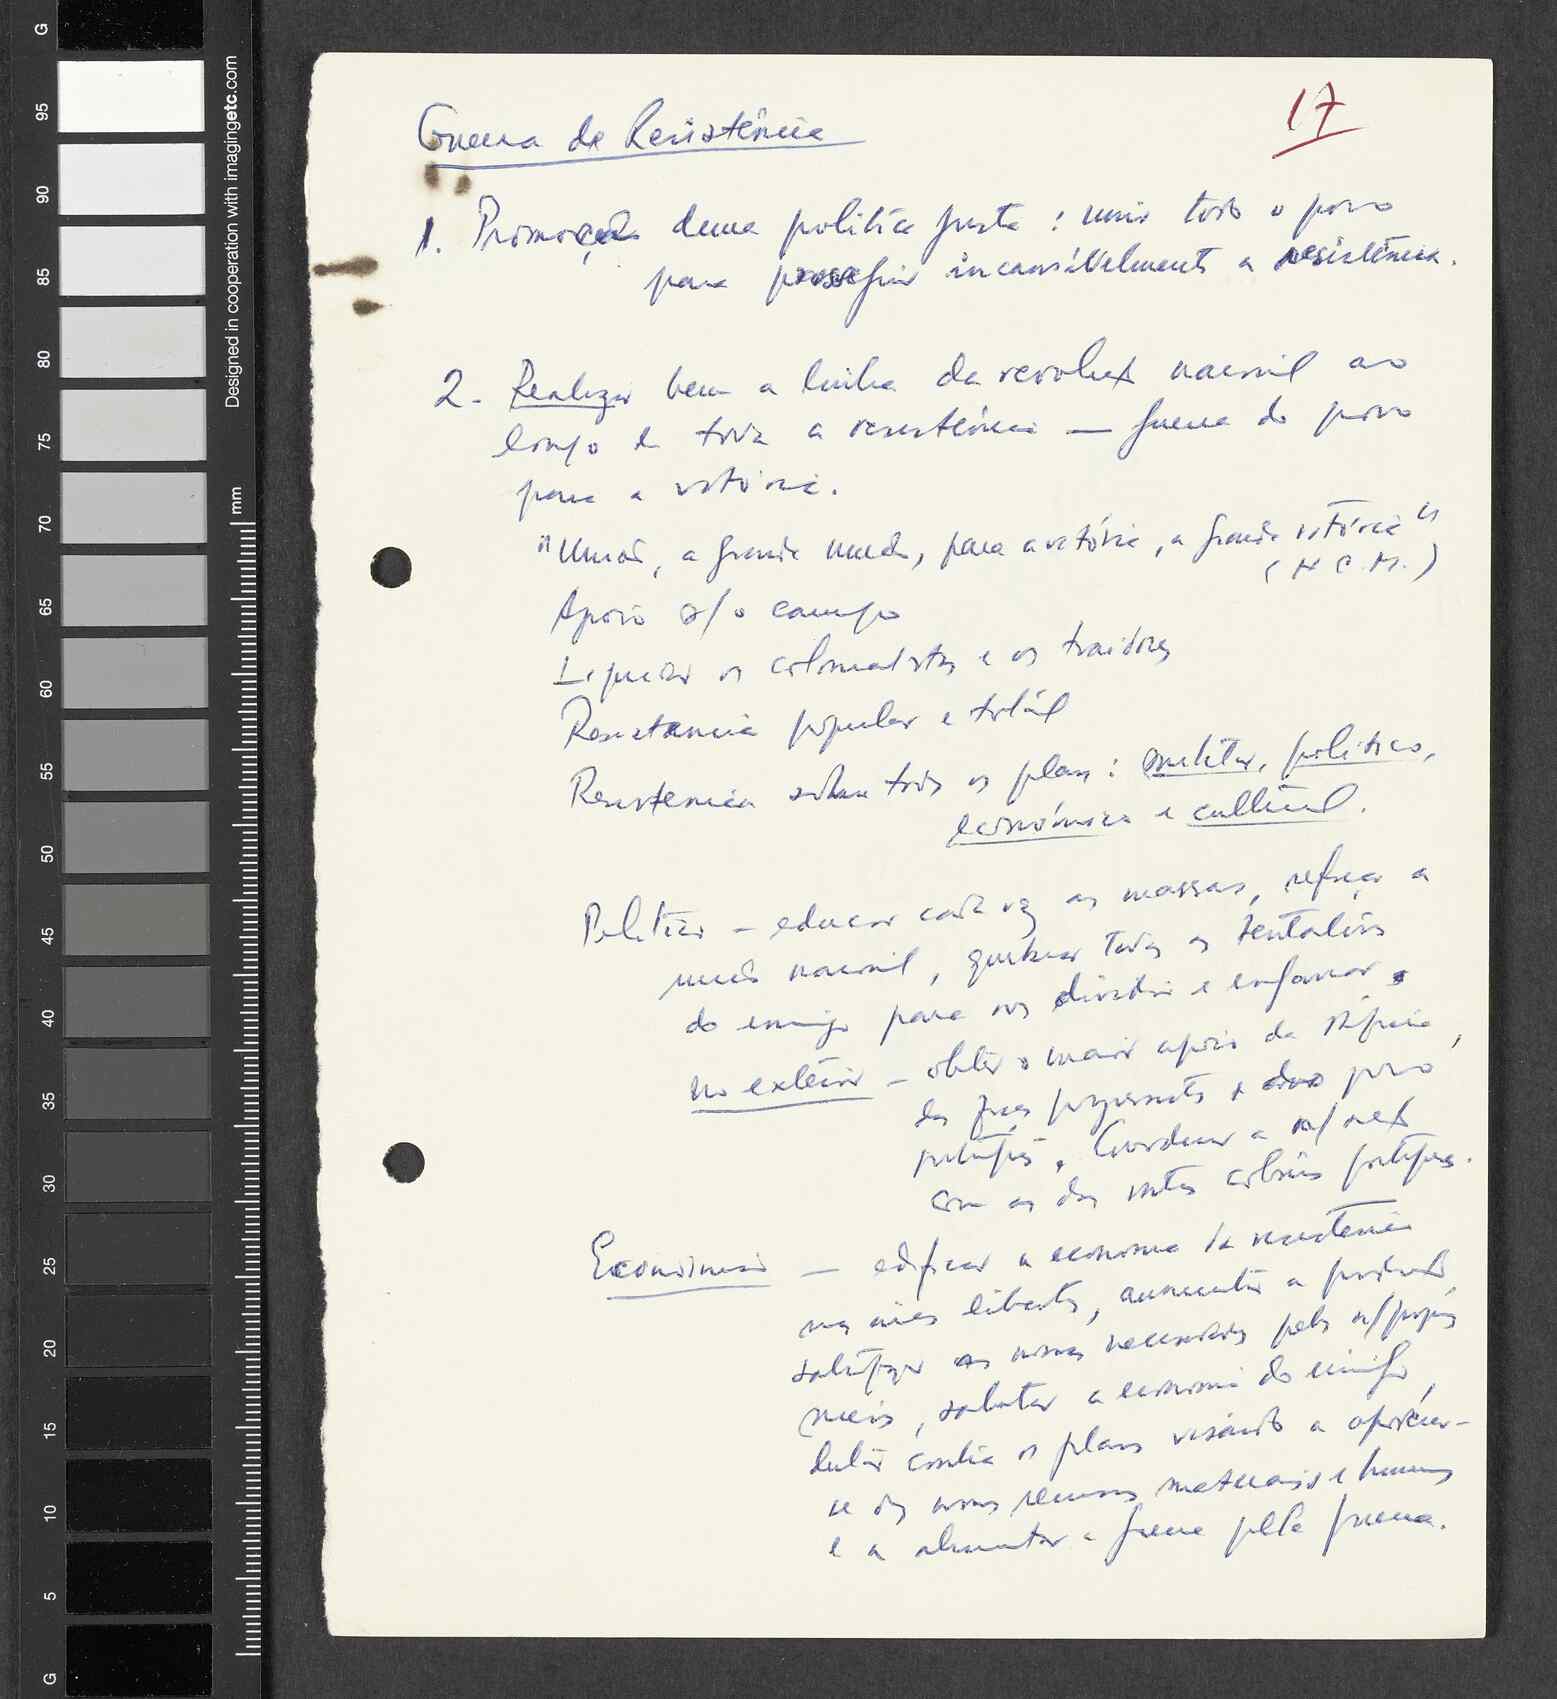 17
Guerra de Resistência
1. Promoção duma política justa: unir todo o povo
para prosseguir incansàvelmente a resistência.
2. Realizar bem a linha da revoluç nacional ao
longo de toda a resistência — guerra do povo
para a vitória.
"União, a grande união, para a vitória, a grande vitória"
(H C. M.)
Apoio s/ o campo
Liquidar os colonialistas e os traidores
Resistencia popular e total
Resistencia sobre todos os planos: militar, político,
económica e cultural.
Política – educar cada vez as massas, reforçar a
união nacional, quebrar todas as tentativas
do inimigo para nos dividir e enganar,
no exterior – obter o maior apoio da
das forças progressistas e do povo
português, Coordenar a n/ acç
com as das outras colónias portugas.
Económica — edificar a economia da resistência
nas áreas libertas, aumentar a produção
satisfazer as nossas necessidades pelos n/ próprios
meios, sabotar a economia do inimigo,
lutar contra os planos visando a apoderar-
se dos nossos recursos materiais e humanos
e a alimentar a guerra pela guerra.
Designed in cooperation with imagingetc.com
mm
G
95
90
85
80
75
70
65
60
55
50
45
40
35
30
25
20
15
10
5
G